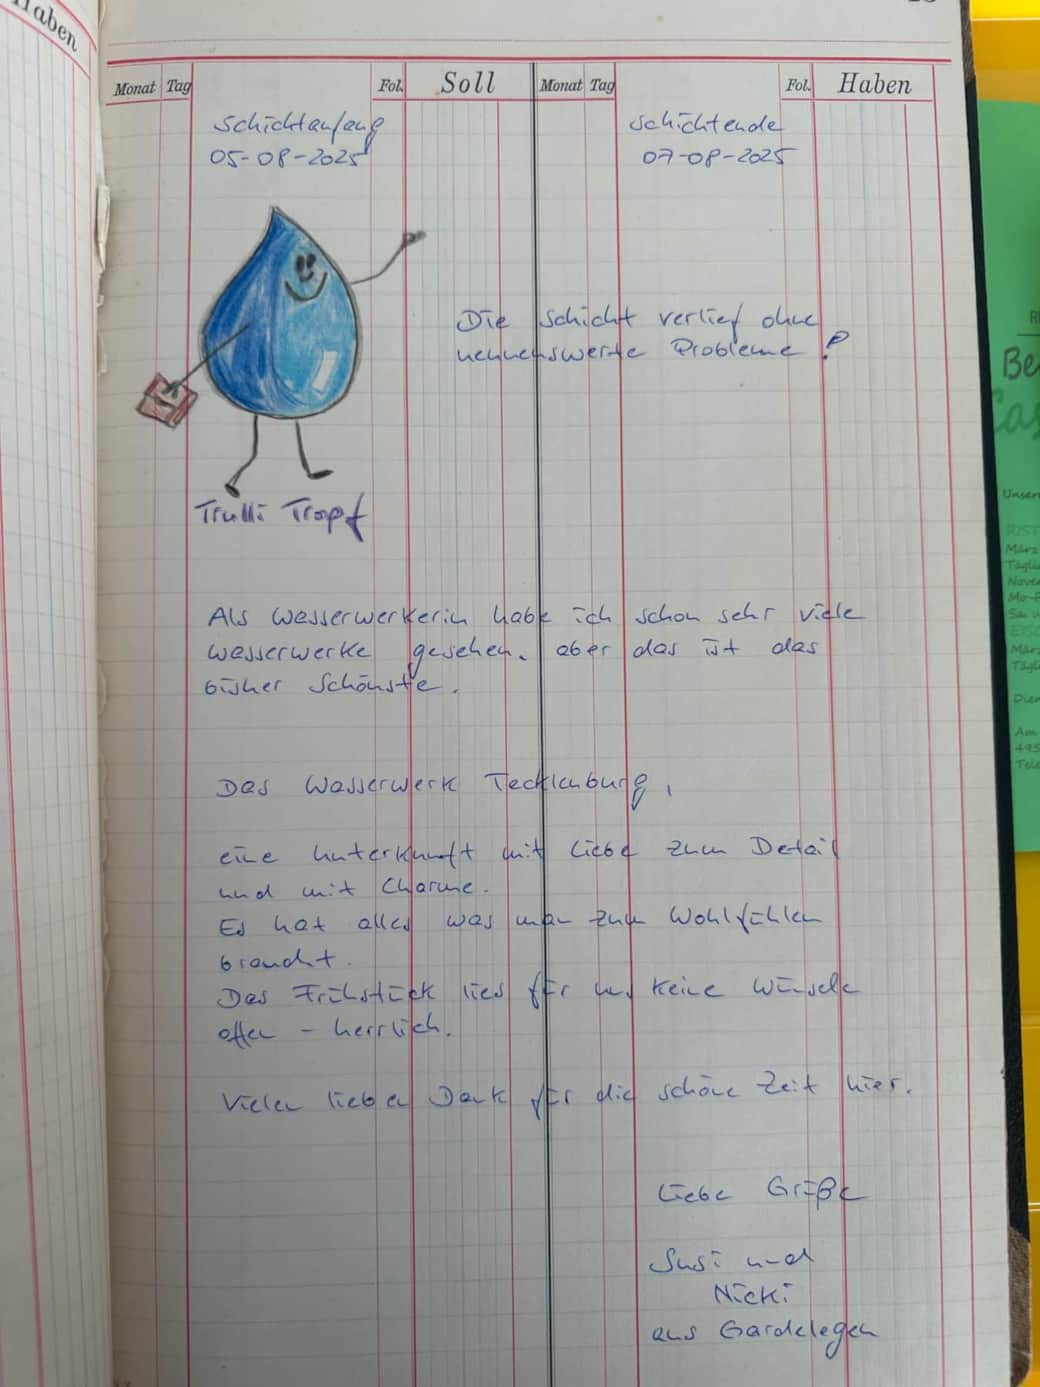 Haben
Monat Tag Fol. Soll Monat Tag Fol. Haben
Schichtanfang
05-08-2025
Schichtende
07-08-2025
Die Schicht verlief ohne
nennenswerte Probleme!
Trulli Tropf
Als Wasserwerkerin habe ich schon sehr viele
Wasserwerke gesehen. aber das ist das
bisher Schönste.
Das Wasserwerk Tecklenburg,
eine Unterkunft mit Liebe zum Detail
und mit Charme.
Es hat alles was man zum Wohlfühlen
braucht.
Das Frühstück lies für uns keine Wünsche
offen - herrlich.
Vielen lieben Dank für die schöne Zeit hier.
Liebe Grüße
Susi und
Nicki
aus Gardelegen
Be
Cas
Unser
März
Täglic
Nove
Mo-F
Sa u
März
Tägl
Dien
Am
495
Tele